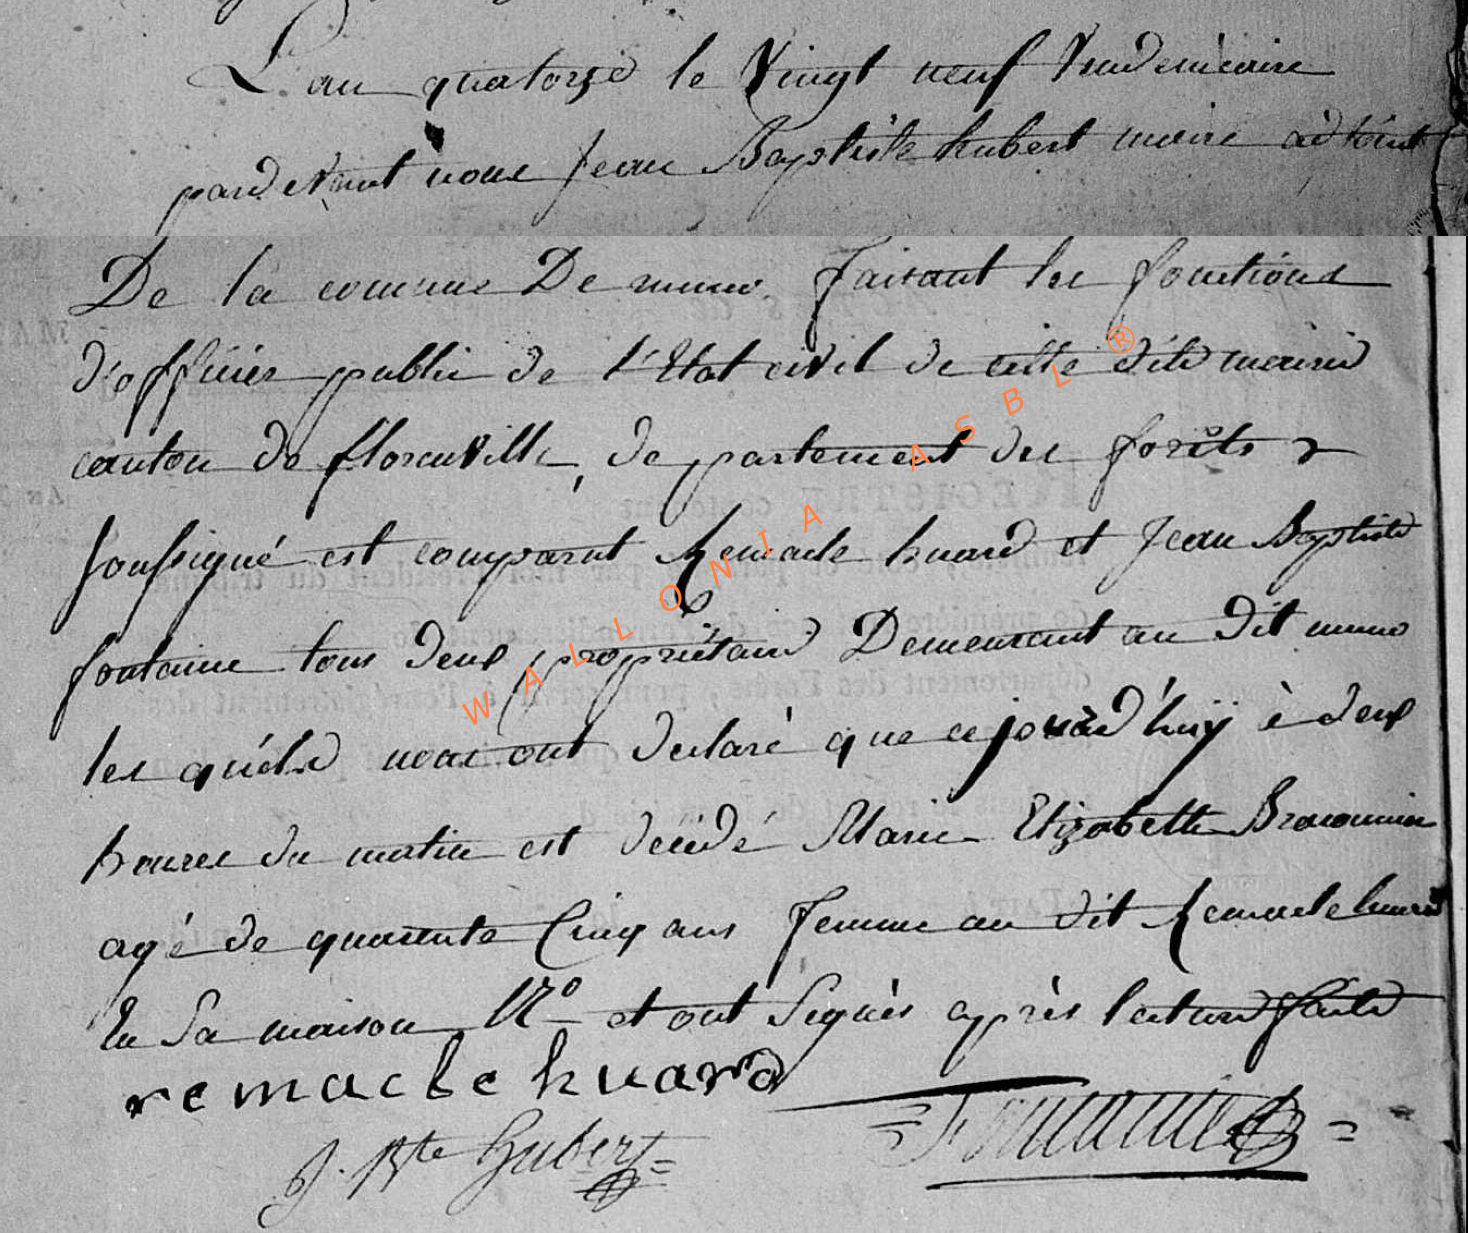 L'an quatorze le Vingt neuf Vendemiaire
pardevant nous Jean Baptiste hubert maire adjoint
De la commune De muno faisant les fonctions
d'officier public de l'Etat civil de cette dite mairie
canton de florenville, departement des forêts
soussigné est comparut Remacle huard et Jean Baptiste
fontaine tous deux propriétaire Demeurant au dit muno
les quéls nous ont declaré que cejourd'huÿ à deux
heures du matin est décédé Marie Elizabette Braconnier
agé de quarente Cinq ans femme au dit Remacle huard
En Sa maison No et ont Signés après lecture faite
remacle huard
J. Bte Hubert
Fontaine
WALLONIA ASBL ®